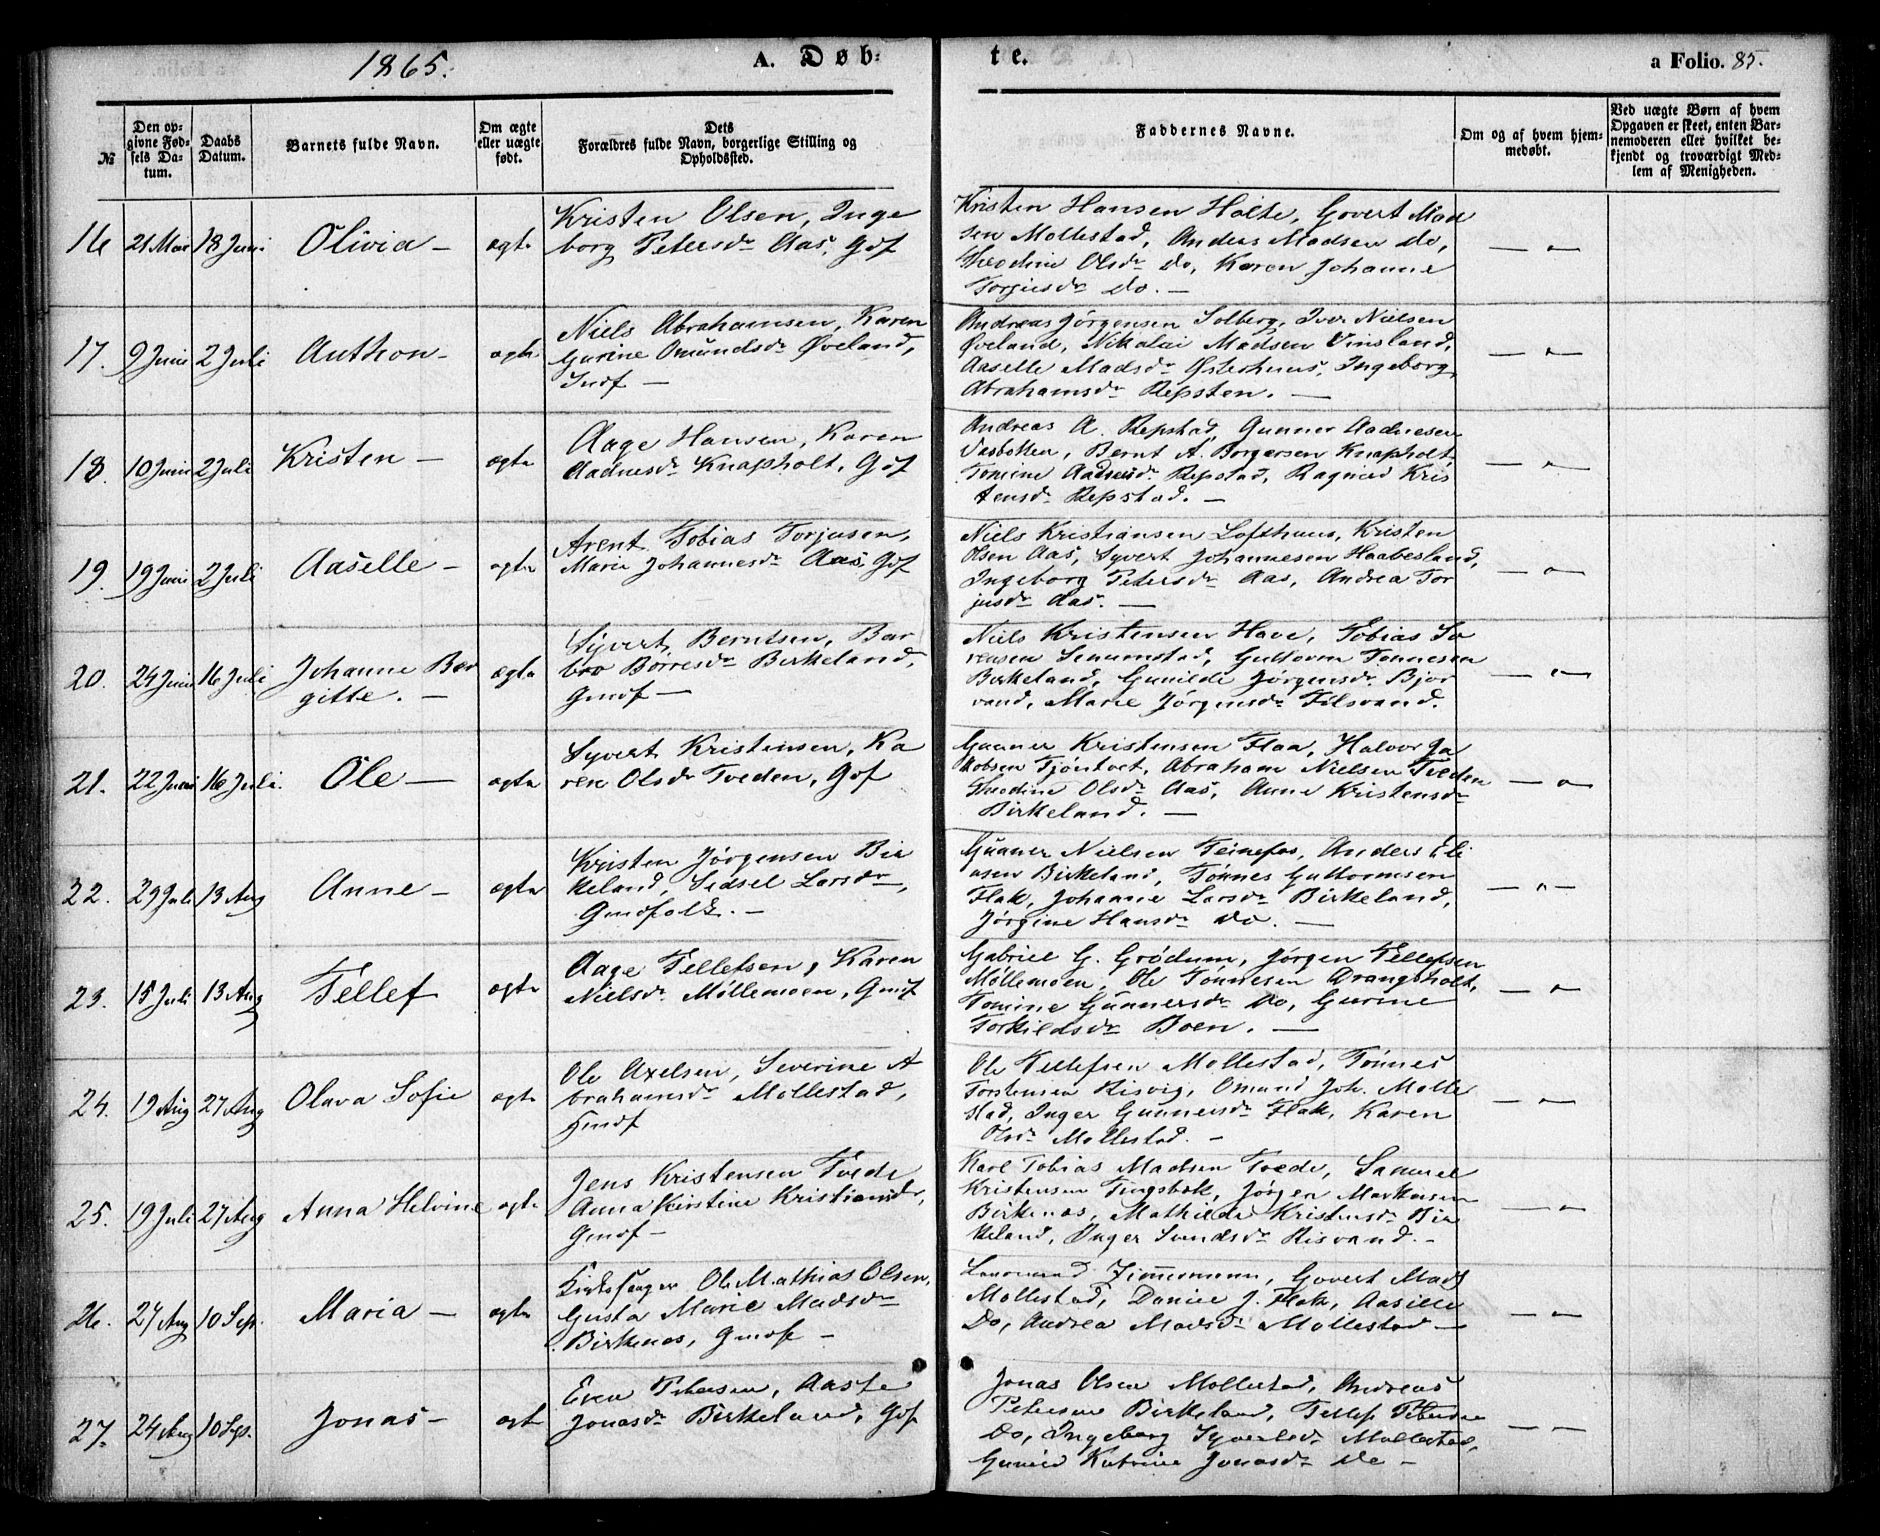 1865.
A. Døb-
te.
a Folio. 85.
№
Den op-
givne Fød-
sels Da-
tum.
Daabs
Datum.
Barnets fulde Navn.
Om ægte
eller uægte
født.
Dets
Forældres fulde Navn, borgerlige Stilling og
Opholdssted.
Faddernes Navne.
Om og af hvem hjem-
medøbt.
Ved uægte Børn af hvem
Opgaven er skeet, enten Bar-
nemoderen eller hvilket be-
kjendt og troværdigt Med-
lem af Menigheden.
16 21 Mai 18 Juni Olivia – ægte
Kristen Olsen, Inge
borg Petersdr Aas, Gdf
Kristen Hansen Holte, Govert Mad
sen Mollestad, Anders Madsen Do,
Theodine Olsdr Do, Karen Johanne
Torjusdr Do. –
17. 9 Juni 2 Juli Anthon – ægte
Niels Abrahamsen, Karen
Gurine Omundsdr Øveland,
Indf –
Andreas Jørgensen Solberg, Iver Nielsen
Øveland, Nikolai Madsen Vinsland,
Aaselle Madsdr Østerhuus, Ingeborg
Abrahamsdr Repsten. –
18. 10 Juni 2 Juli Kristen – ægte
Aage Hansen, Karen
Aadnesdr Knapholt, Gdf
Andreas A. Repstad, Gunner Aadnesen
Væbotten, Bernt A. Borgersen Knapholt,
Tomine Aadnesdr Repstad, Ragnild Kris
tensdr Repstad. –
19. 19 Juni 2 Juli Aaselle – ægte
Arent Tobias Torjusen,
Marie Johannesdr Aas, Gdf
Niels Kristiansen Lofthuus, Kristen
Olsen Aas, Syvert Johannesen Haabesland,
Ingeborg Petersdr Aas, Andrea Tor
jusdr Aas. –
20. 24 Juni 16 Juli Johanne Bor
gitte. – ægte
Syvert Berntsen, Bar
bro Børresdr Birkeland,
Gmdf –
Niels Kristensen Have, Tobias Sø
rensen Senumstad, Guttorm Tønnesen
Birkeland, Gunilde Jørgensdr Bjor
vand, Marie Jørgensdr Filsvand.
21. 22 Juni 16 Juli. Ole – ægte
Syvert Kristensen, Ka
ren Olsdr Tveden, Gdf
Gunner Kristensen Flaa, Halvor Ja
kobsen Tjøntvet, Abraham Nielsen Tveden
Theodine Olsdr Aas, Anne Kristensdr
Birkeland. –
22. 29 Juli 13 Aug Anne – ægte
Kristen Jørgensen Bir
keland, Sidsel Larsdr,
Gmdfolk. –
Gunner Nielsen Teinefos, Anders Eli
asen Birkeland, Tønnes Guttormsen
Flak, Johanne Larsdr Birkeland,
Jørgine Hansdr Do. –
23. 15 Juli 13 Aug Tellef ægte
Aage Tellefsen, Karen
Nielsdr Møllemoen, Gmdf
Gabriel G. Grødum, Jørgen Tellefsen
Møllemoen, Ole Tønnesen Drangsholt,
Tomine Gunnersdr Do, Gurine
Torkildsdr Boen. –
24. 19 Aug 27 Aug Olava Sofie ægte
Ole Axelsen, Severine A
brahamsdr Mollestad,
Hmdf
Ole Tellefsen Mollestad, Tønnes
Torstensen Risvig, Omund Joh. Molle
stad, Inger Gunnersdr Flak, Karen
Olsdr Mollestad. –
25. 19 Juli 27 Aug Anna Helvine ægte
Jens Kristensen Tvede
Anna Kirstine Kristiansdr,
Gmdf –
Karl Tobias Madsen Tvede, Samuel
Kristensen Tingsbøk, Jørgen Markusen
Birkenæs, Mathilde Kristensdr Bir
keland, Inger Svendsdr Risvand. –
26. 27 Aug 10 Sep. Maria – ægte
Kirkesanger Ole Mathias Olsen,
Gusta Marie Madsdr
Birkenæs, Gmdf –
Zimmermann, Govert Mads
Mollestad, Daniel J. Flak, Aaselle
Do, Andrea Madsdr Mollestad –
27. 24 Aug 10 Sep. Jonas – ægt
Even Petersen, Aaste
Jonasdr Birkeland, Gdf
Jonas Olsen Mollestad, Andreas
Petersen Birkeland, Tellef Petersen
Do, Ingeborg Syvertsdr Mollestad,
Gunild Katrine Jonasdr Do –